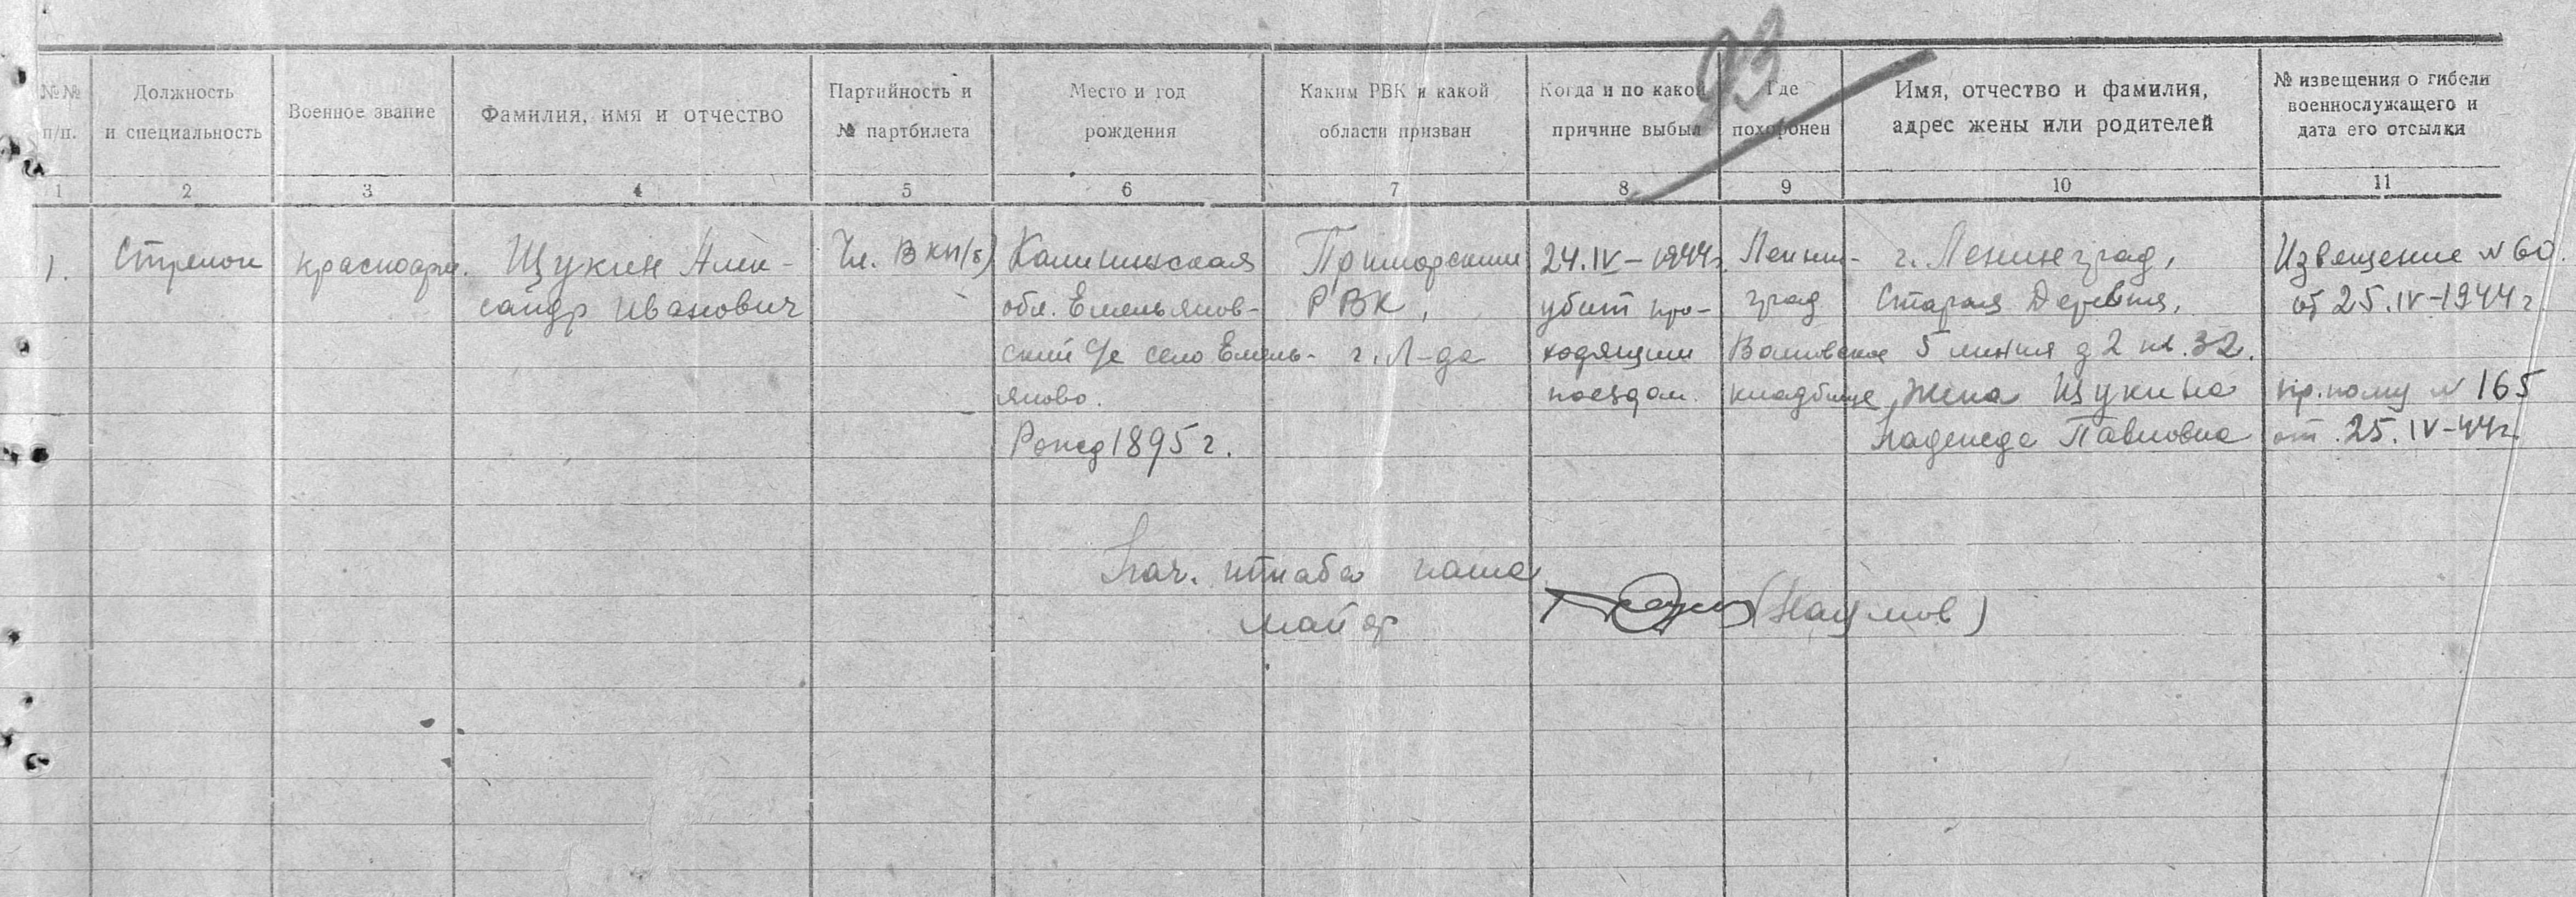 93
№№ п/п.
Должность и специальность
Военное звание
Фамилия, имя и отчество
Партийность и № партбилета
Место и год рождения
Каким РВК и какой области призван
Когда и по какой причине выбыл
Где похоронен
Имя, отчество и фамилия, адрес жены или родителей
№ извещения о гибели военнослужащего и дата его отсылки
1 2 3 4 5 6 7 8 9 10 11
1.
Стрелок
красноарм.
Щукин Алек-
сандр Иванович
Чл. ВКП/б/
Калининская
обл. Емельянов-
ский село Емель-
яново.
Рожд 1895 г.
Приморским
РВК,
г. Л-да
24.IV-1944г.
убит про-
ходящим
поездом.
Ленин-
град
кладбище
г. Ленинград,
Старая Деревня,
5 линия д 2 кв. 32.
Жена Щукина
Надежда Павловна
Извещение №60.
от 25.IV-1944г.
№ 165
от 25.IV-44г.
Нач. штаба
майор
(Наумов)